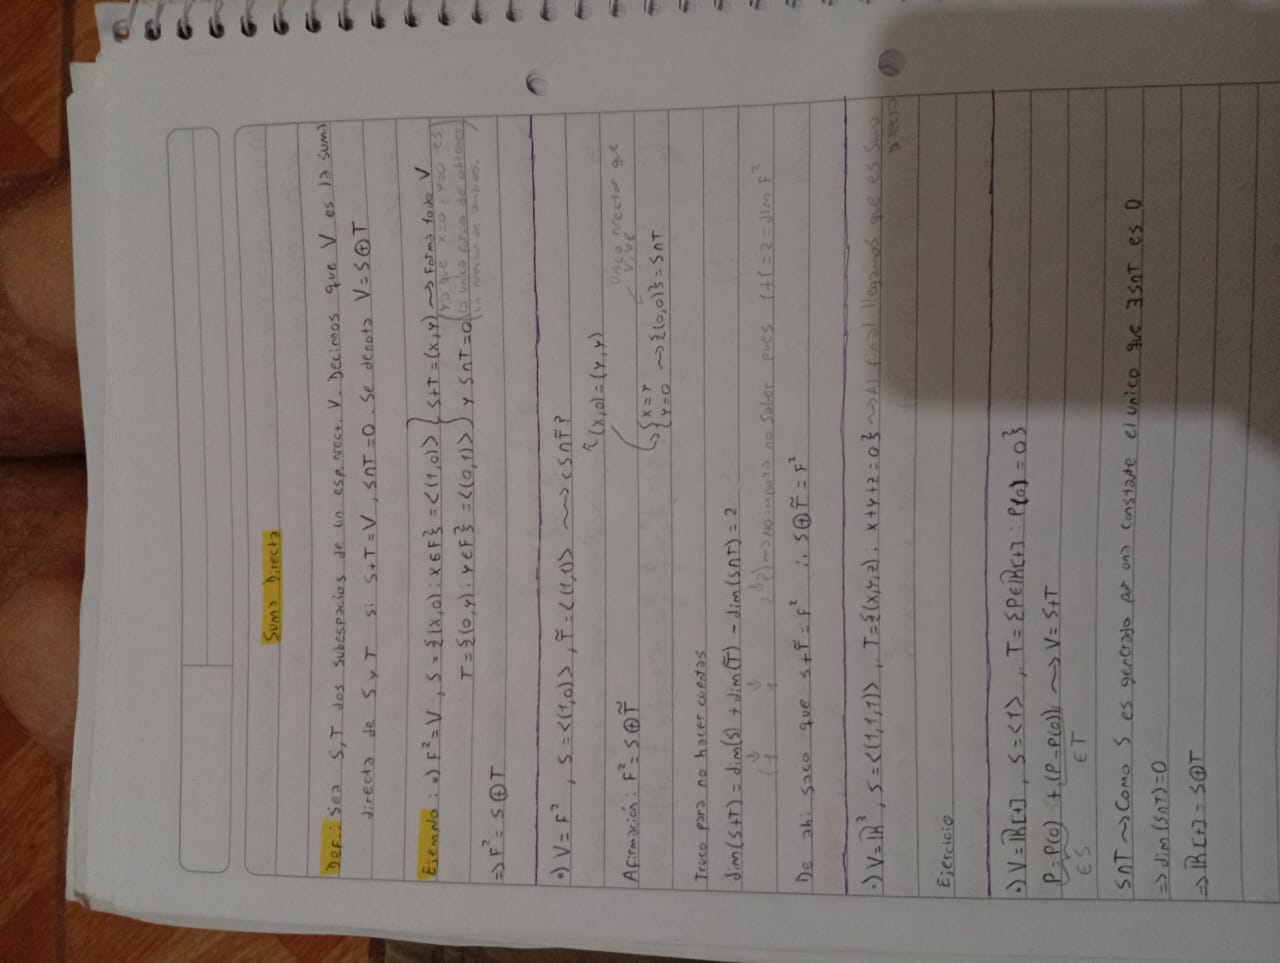 Suma Directa
Def.: Sea S,T dos subespacios de un esp.vect. V. Decimos que V es la suma
directa de S y T si S+T=V, S∩T=0. Se denota V=S⊕T
Ejemplo: •) F²=V, S={(x,0): x∈F}=<(1,0)> } S+T=(x,y) ⇝ Forma todo V
T={(0,y): y∈F}=<(0,1)> } y S∩T=0 (ya que x=0, y=0 es
la unica forma de obtener
un vector de ambos.)
⇒ F²=S⊕T
•) V=F², S=<(1,0)>, T̃=<(1,1)> ⇝ ¿S∩T̃?
(x,0)=(y,y)
Afirmación: F²=S⊕T̃
↳ {x=y
{y=0 ⇝ {(0,0)}=S∩T
Unico vector que
vive
Truco para no hacer cuentas
dim(S+T)=dim(S)+dim(T̃)-dim(S∩T)=2
↓ ↓
(1 1 ⇝ no importa no saber pues 1+1=2=dim F²
De ahi saco que S+T̃=F² ∴ S⊕T̃=F²
•) V=ℝ³, S=<(1,1,1)>, T={(x,y,z): x+y+z=0} ⇝ Al final llegamos que es suma
DIRECTA
Ejercicio
•) V=ℝ[t], S=<1>, T={P∈ℝ[t]: P(0)=0}
P=P(0)+(P-P(0)) ⇝ V=S+T
∈S ∈T
S∩T ⇝ Como S es generado por una constante el unico que ∃ S∩T es 0
⇒ dim(S∩T)=0
⇒ ℝ[t]=S⊕T